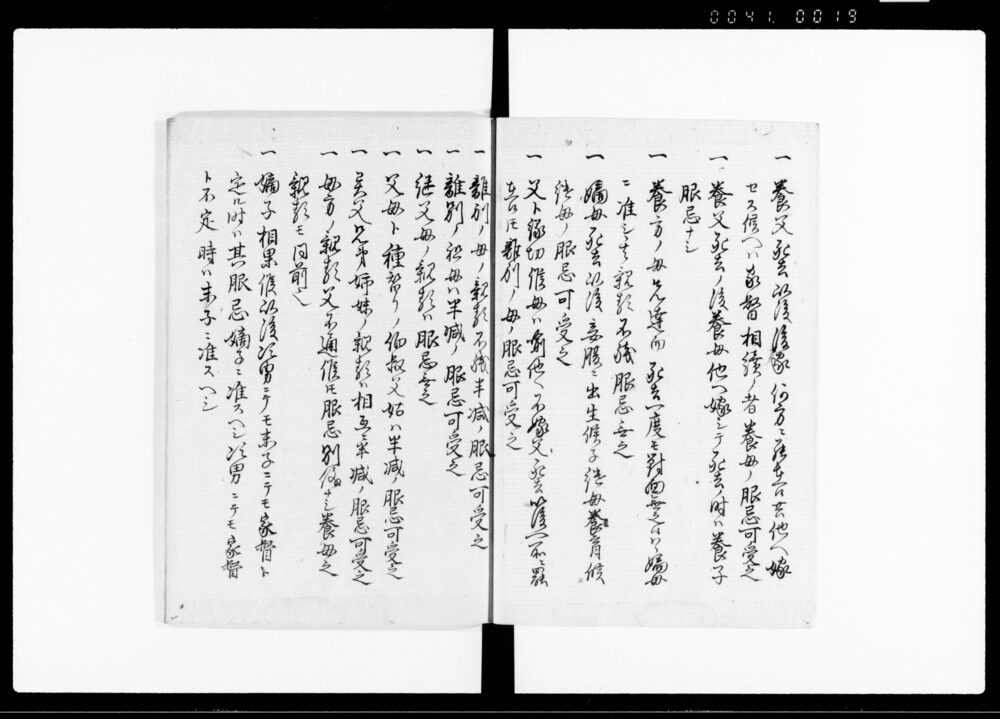 0041. 0019
一 養父死去以後後家何方ニ罷在候共他ヘ嫁
セス候ヘハ家督相續ノ者養母ノ服忌可受之
一 養父死去ノ後養母他ヘ嫁シテ死去ノ時ハ養子
服忌ナシ
一 養方ノ母兄達 死去一度モ對面無之 嫡母
ニ准シ 親類不殘服忌無之
一 嫡母死去以後妾腹ニ出生候子継母養育候
継母ノ服忌可受之
一 父ト縁切候母ハ 他ヘ不嫁父死去以後
離別ノ母ノ服忌可受之
一 離別ノ母ノ親類不殘半減ノ服忌可受之
一 離別ノ祖母ハ半減ノ服忌可受之
一 継父母ノ親類ハ服忌無之
一 父母ト種替リノ伯叔父姑ハ半減ノ服忌可受之
一 異父兄弟姉妹ノ親類ハ相互ニ半減ノ服忌可受之
一 母方ノ親類父不通候 服忌別 ナシ養母之
親類モ同前之
一 嫡子相果候以後次男ニテモ末子ニテモ家督ト
定ル時ハ其服忌嫡子ニ准スヘシ次男ニテモ家督
ト不定時ハ末子ニ准スヘシ